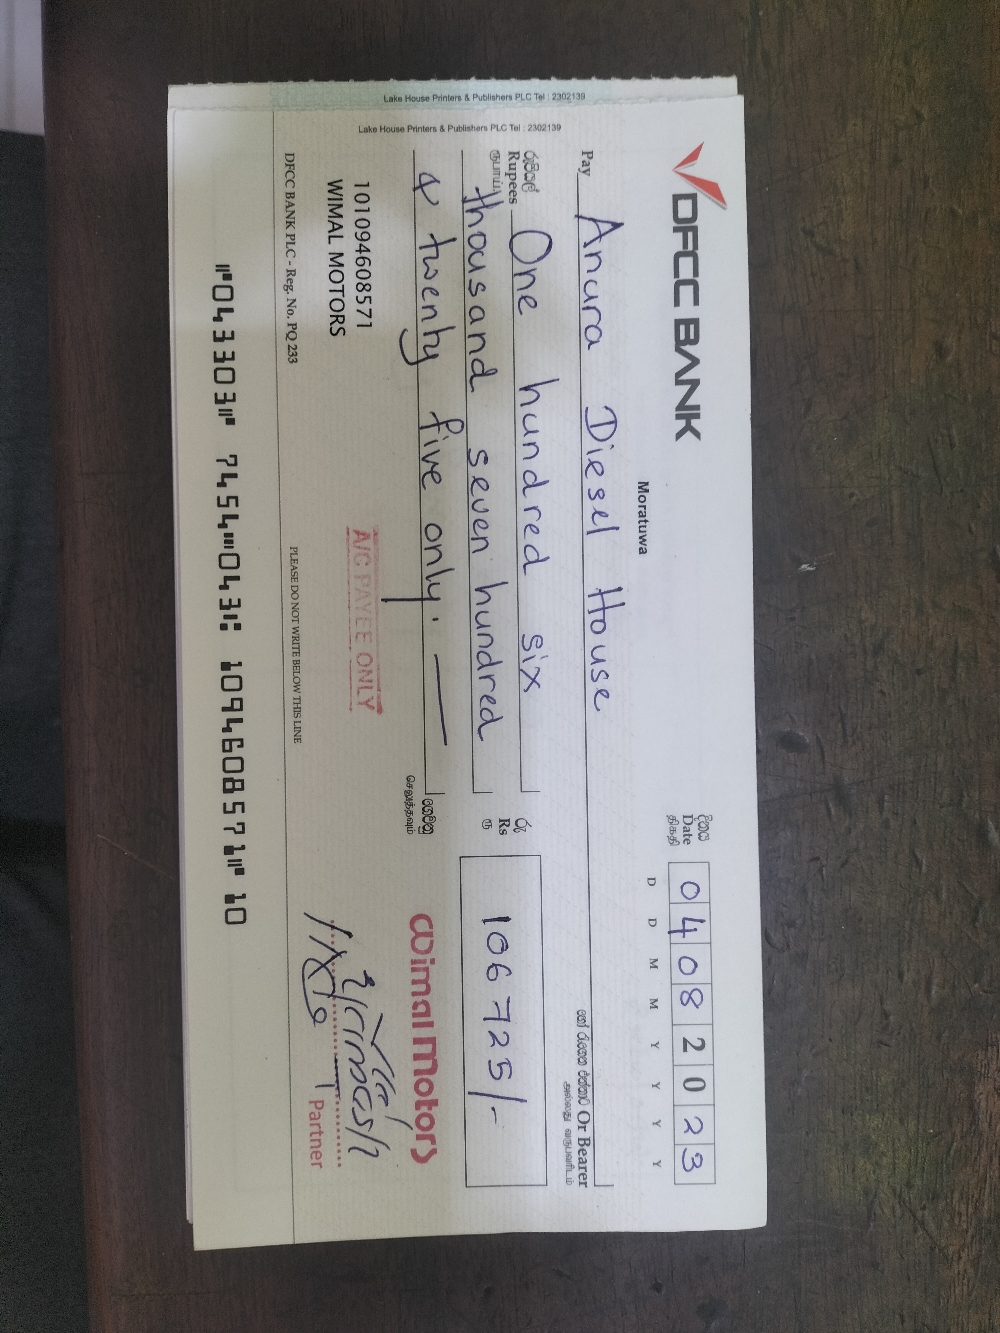 Lake House Printers & Publishers PLC Tel : 2302139
Lake House Printers & Publishers PLC Tel : 2302139
DFCC BANK
Moratuwa
දිනය
Date
திகதி
0 4 0 8 2 0 2 3
D D M M Y Y Y Y
Pay Anura Diesel House
Or Bearer
රුපියල්
Rupees
ரூபாய்
One hundred six
thousand seven hundred
& twenty five only. —
රු
Rs
ரூ
106 725/-
ගෙවනු
செலுத்தவும்
101094608571
WIMAL MOTORS
A/C PAYEE ONLY
Wimal Motors
Partner
DFCC BANK PLC - Reg. No. PQ 233
PLEASE DO NOT WRITE BELOW THIS LINE
⑈043303⑈ 7454⑉043⑆ 1094608571⑈ 10